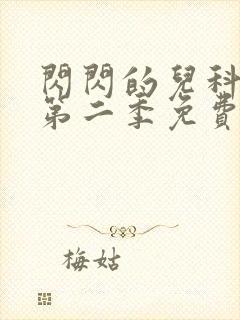 閃閃的兒科
第二季免費
梅姑